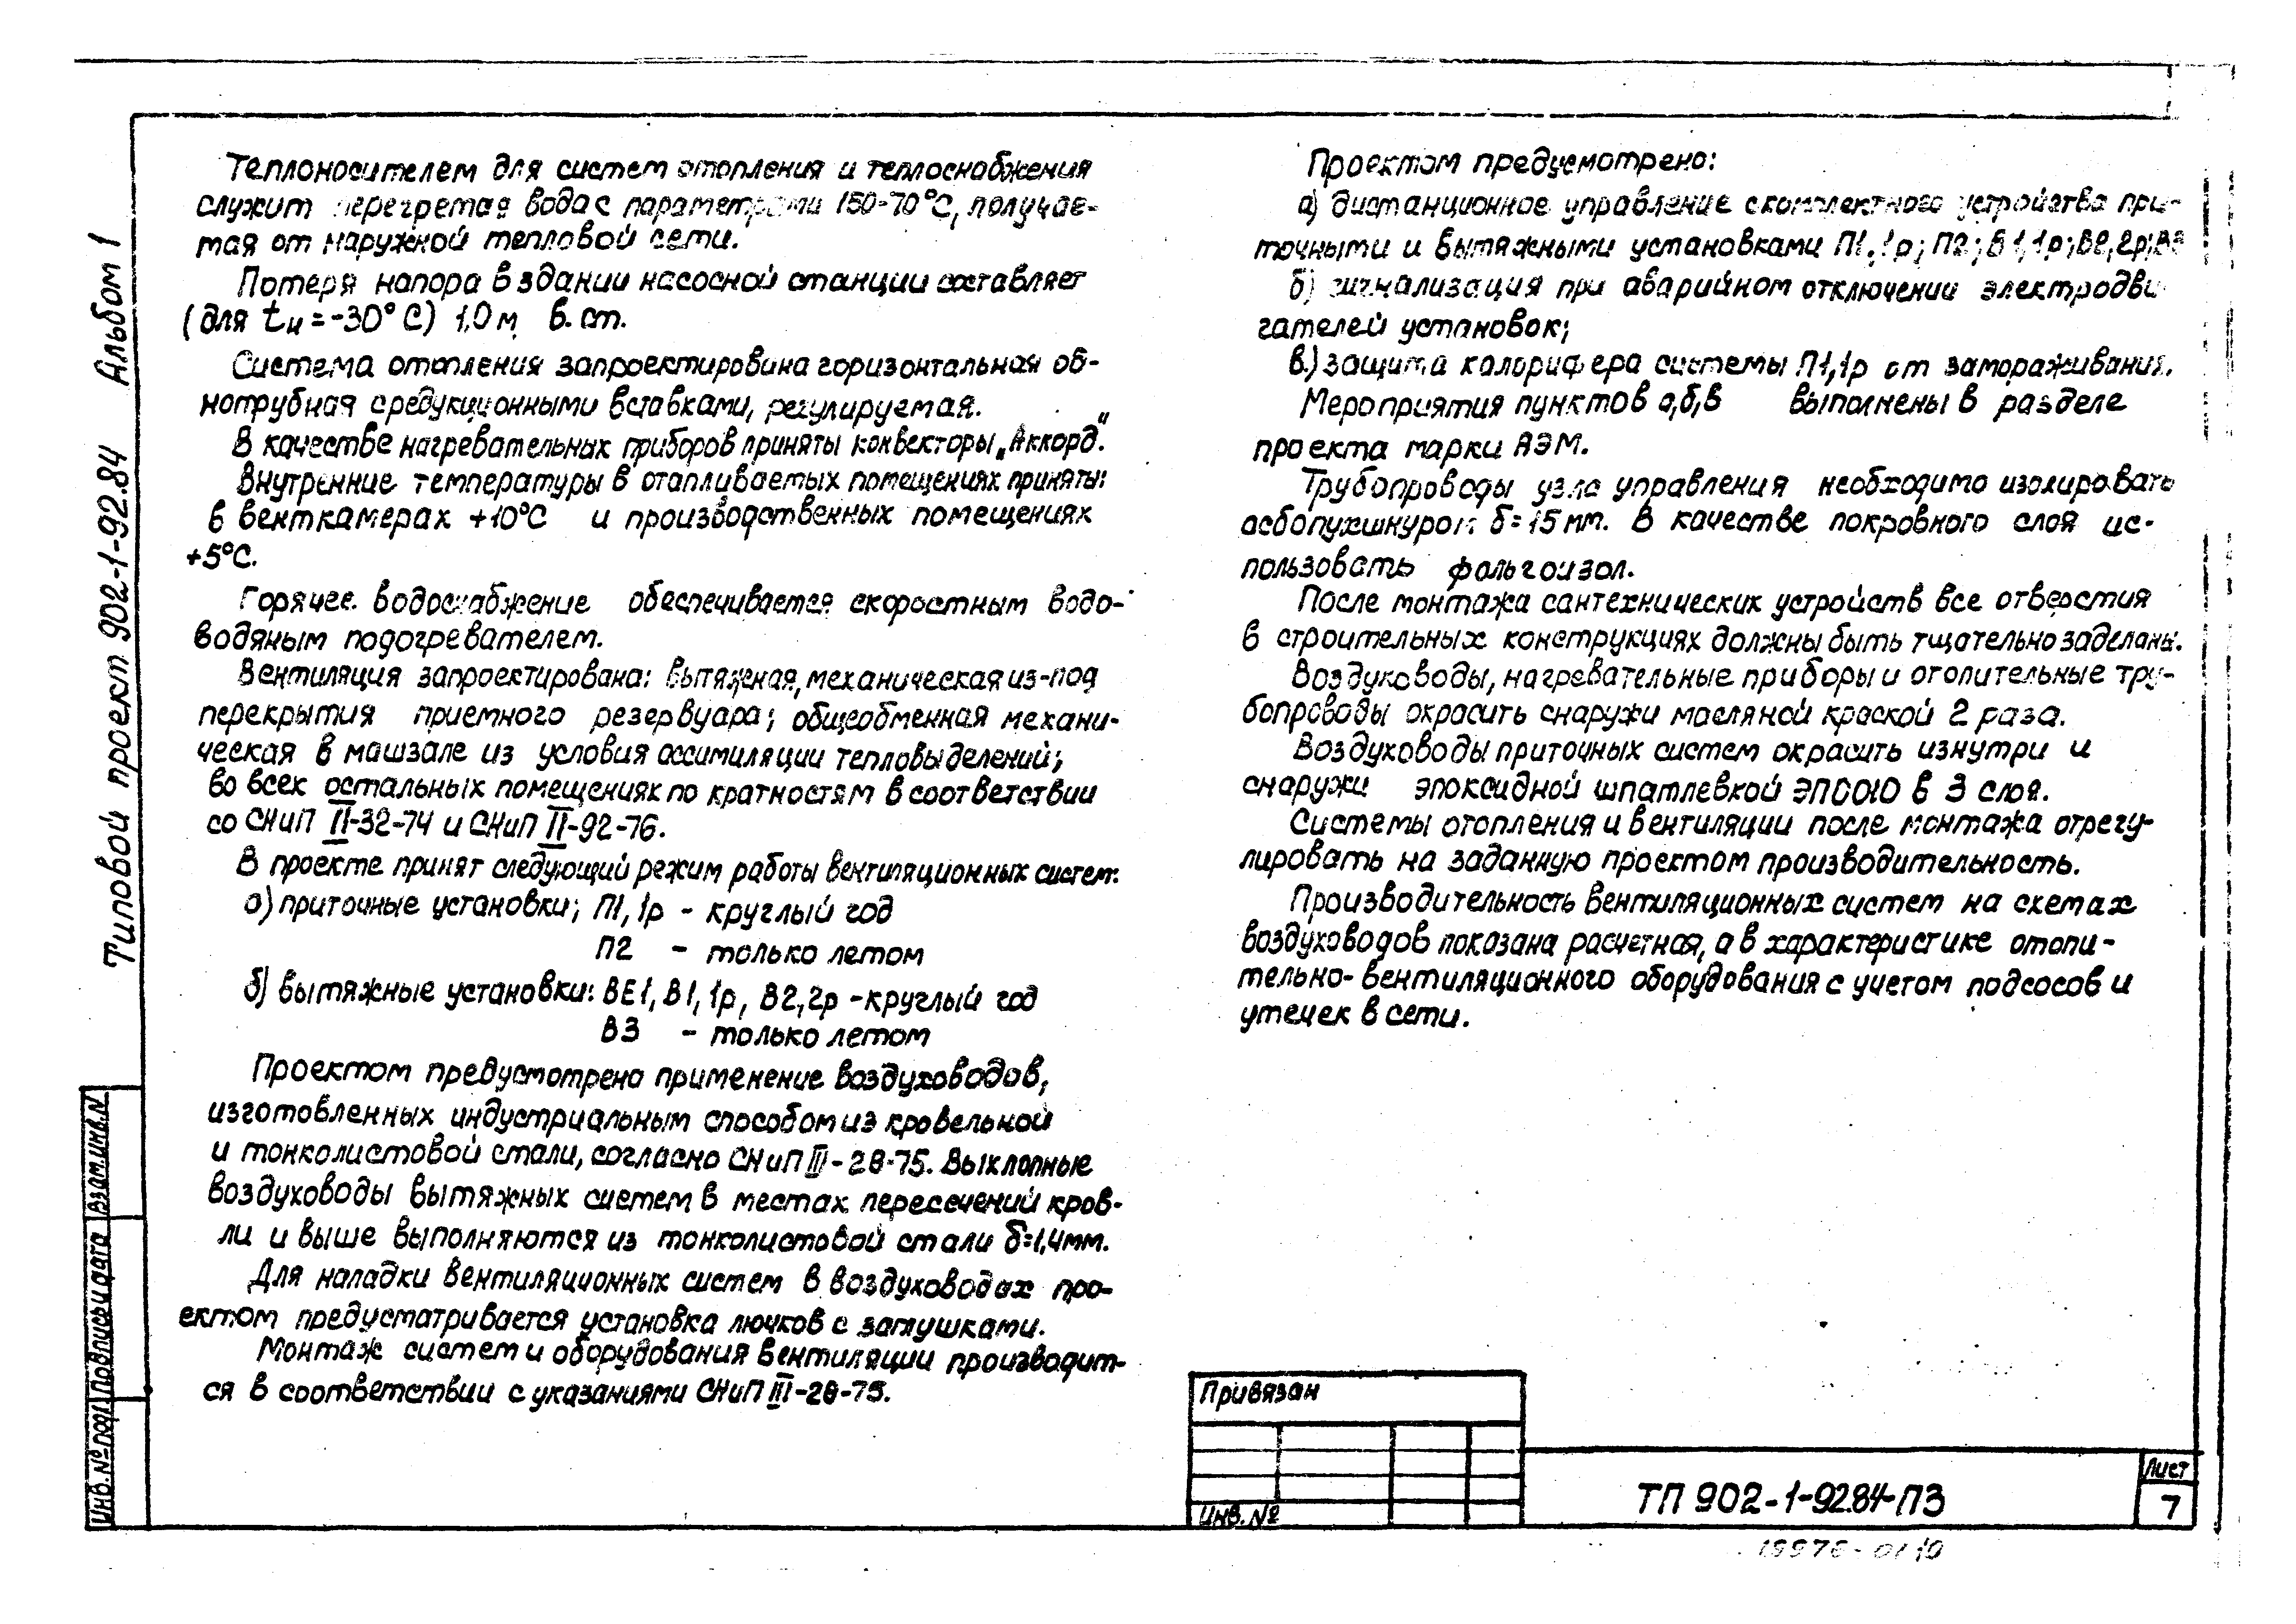 Теплоносителем для систем отопления и теплоснабжения
служит перегретая вода с параметрами 150-70°С, получае-
мая от наружной тепловой сети.
Потеря напора в здании насосной станции составляет
(для tн = -30°С) 1,0 м в. ст.
Система отопления запроектирована горизонтальная од-
нотрубная с редукционными вставками, регулируемая.
В качестве нагревательных приборов приняты конвекторы „Аккорд".
Внутренние температуры в отапливаемых помещениях приняты:
в венткамерах +10°С и производственных помещениях
+5°С.
Горячее водоснабжение обеспечивается скоростным водо-
водяным подогревателем.
Вентиляция запроектирована: вытяжная, механическая из-под
перекрытия приемного резервуара; общеобменная механи-
ческая в машзале из условия ассимиляции тепловыделений;
во всех остальных помещениях по кратностям в соответствии
со СНиП II-32-74 и СНиП II-92-76.
В проекте принят следующий режим работы вентиляционных систем:
а) приточные установки; П1, 1р - круглый год
П2 - только летом
б) вытяжные установки: ВЕ1, В1, 1р, В2, 2р - круглый год
В3 - только летом
Проектом предусмотрено применение воздуховодов,
изготовленных индустриальным способом из кровельной
и тонколистовой стали, согласно СНиП III-28-75. Выхлопные
воздуховоды вытяжных систем в местах пересечений кров-
ли и выше выполняются из тонколистовой стали δ=1,4мм.
Для наладки вентиляционных систем в воздуховодах про-
ектом предусматривается установка лючков с заглушками.
Монтаж систем и оборудования вентиляции производит-
ся в соответствии с указаниями СНиП III-28-75.
Проектом предусмотрено:
а) дистанционное управление с комплектного устройства при-
точными и вытяжными установками П1, 1р; П2; В1, 1р; В2, 2р; В3
б) сигнализация при аварийном отключении электродви
гателей установок;
в.) защита калорифера системы П1, 1р от замораживания.
Мероприятия пунктов а, б, в выполнены в разделе
проекта марки АЭМ.
Трубопроводы узла управления необходимо изолировать
асбопухшнуром δ=15мм. В качестве покровного слоя ис-
пользовать фольгоизол.
После монтажа сантехнических устройств все отверстия
в строительных конструкциях должны быть тщательно заделаны.
Воздуховоды, нагревательные приборы и отопительные тру-
бопроводы окрасить снаружи масляной краской 2 раза.
Воздуховоды приточных систем окрасить изнутри и
снаружи эпоксидной шпатлевкой ЭП0010 в 3 слоя.
Системы отопления и вентиляции после монтажа отрегу-
лировать на заданную проектом производительность.
Производительность вентиляционных систем на схемах
воздуховодов показана расчетная, а в характеристике отопи-
тельно-вентиляционного оборудования с учетом подсосов и
утечек в сети.
Типовой проект 902-1-92.84 Альбом 1
Инв. № подл Подпись и дата Взам.инв.N
Привязан
Инв. №
ТП 902-1-92.84-ПЗ
Лист
7
19976-01 10